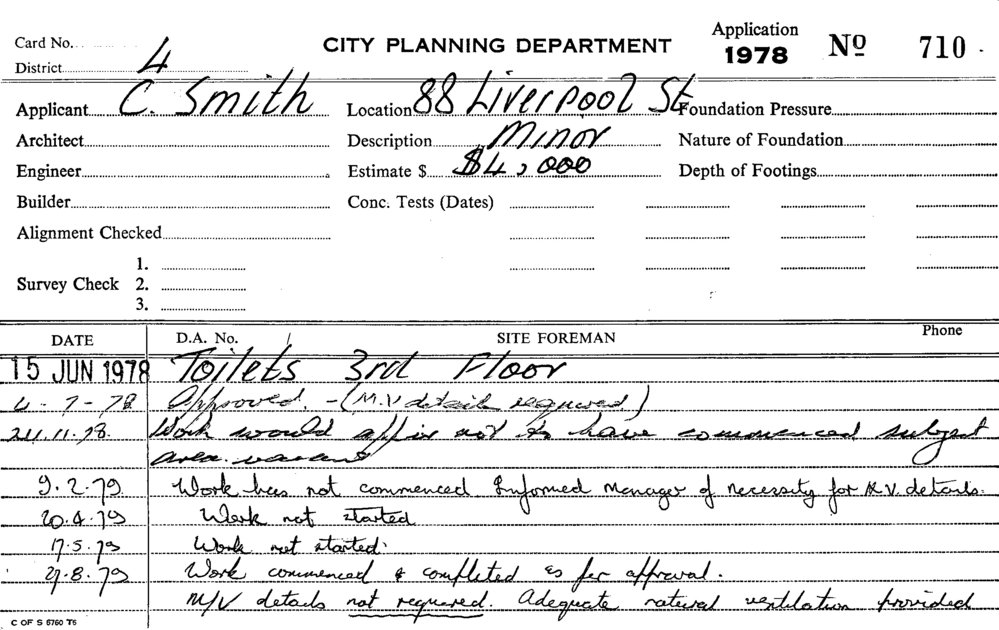 Card No. CITY PLANNING DEPARTMENT Application 1978 Nº 710
District 4
Applicant C. Smith Location 88 Liverpool St Foundation Pressure
Architect Description Minor Nature of Foundation
Engineer Estimate $ $4,000 Depth of Footings
Builder Conc. Tests (Dates)
Alignment Checked
1.
Survey Check 2.
3.
DATE D.A. No. SITE FOREMAN Phone
15 JUN 1978 Toilets 3rd Floor
4-7-78 Approved. - (M.V details required)
24.11.78. Work would appear not to have commenced subject
area vacant
9.2.79 Work has not commenced Informed Manager of necessity for M.V. details.
20.4.79 Work not started
17.5.79 Work not started.
.8.79 Work commenced & completed as per approval.
M/V details not required. Adequate natural ventilation provided
C OF S 5760 T5